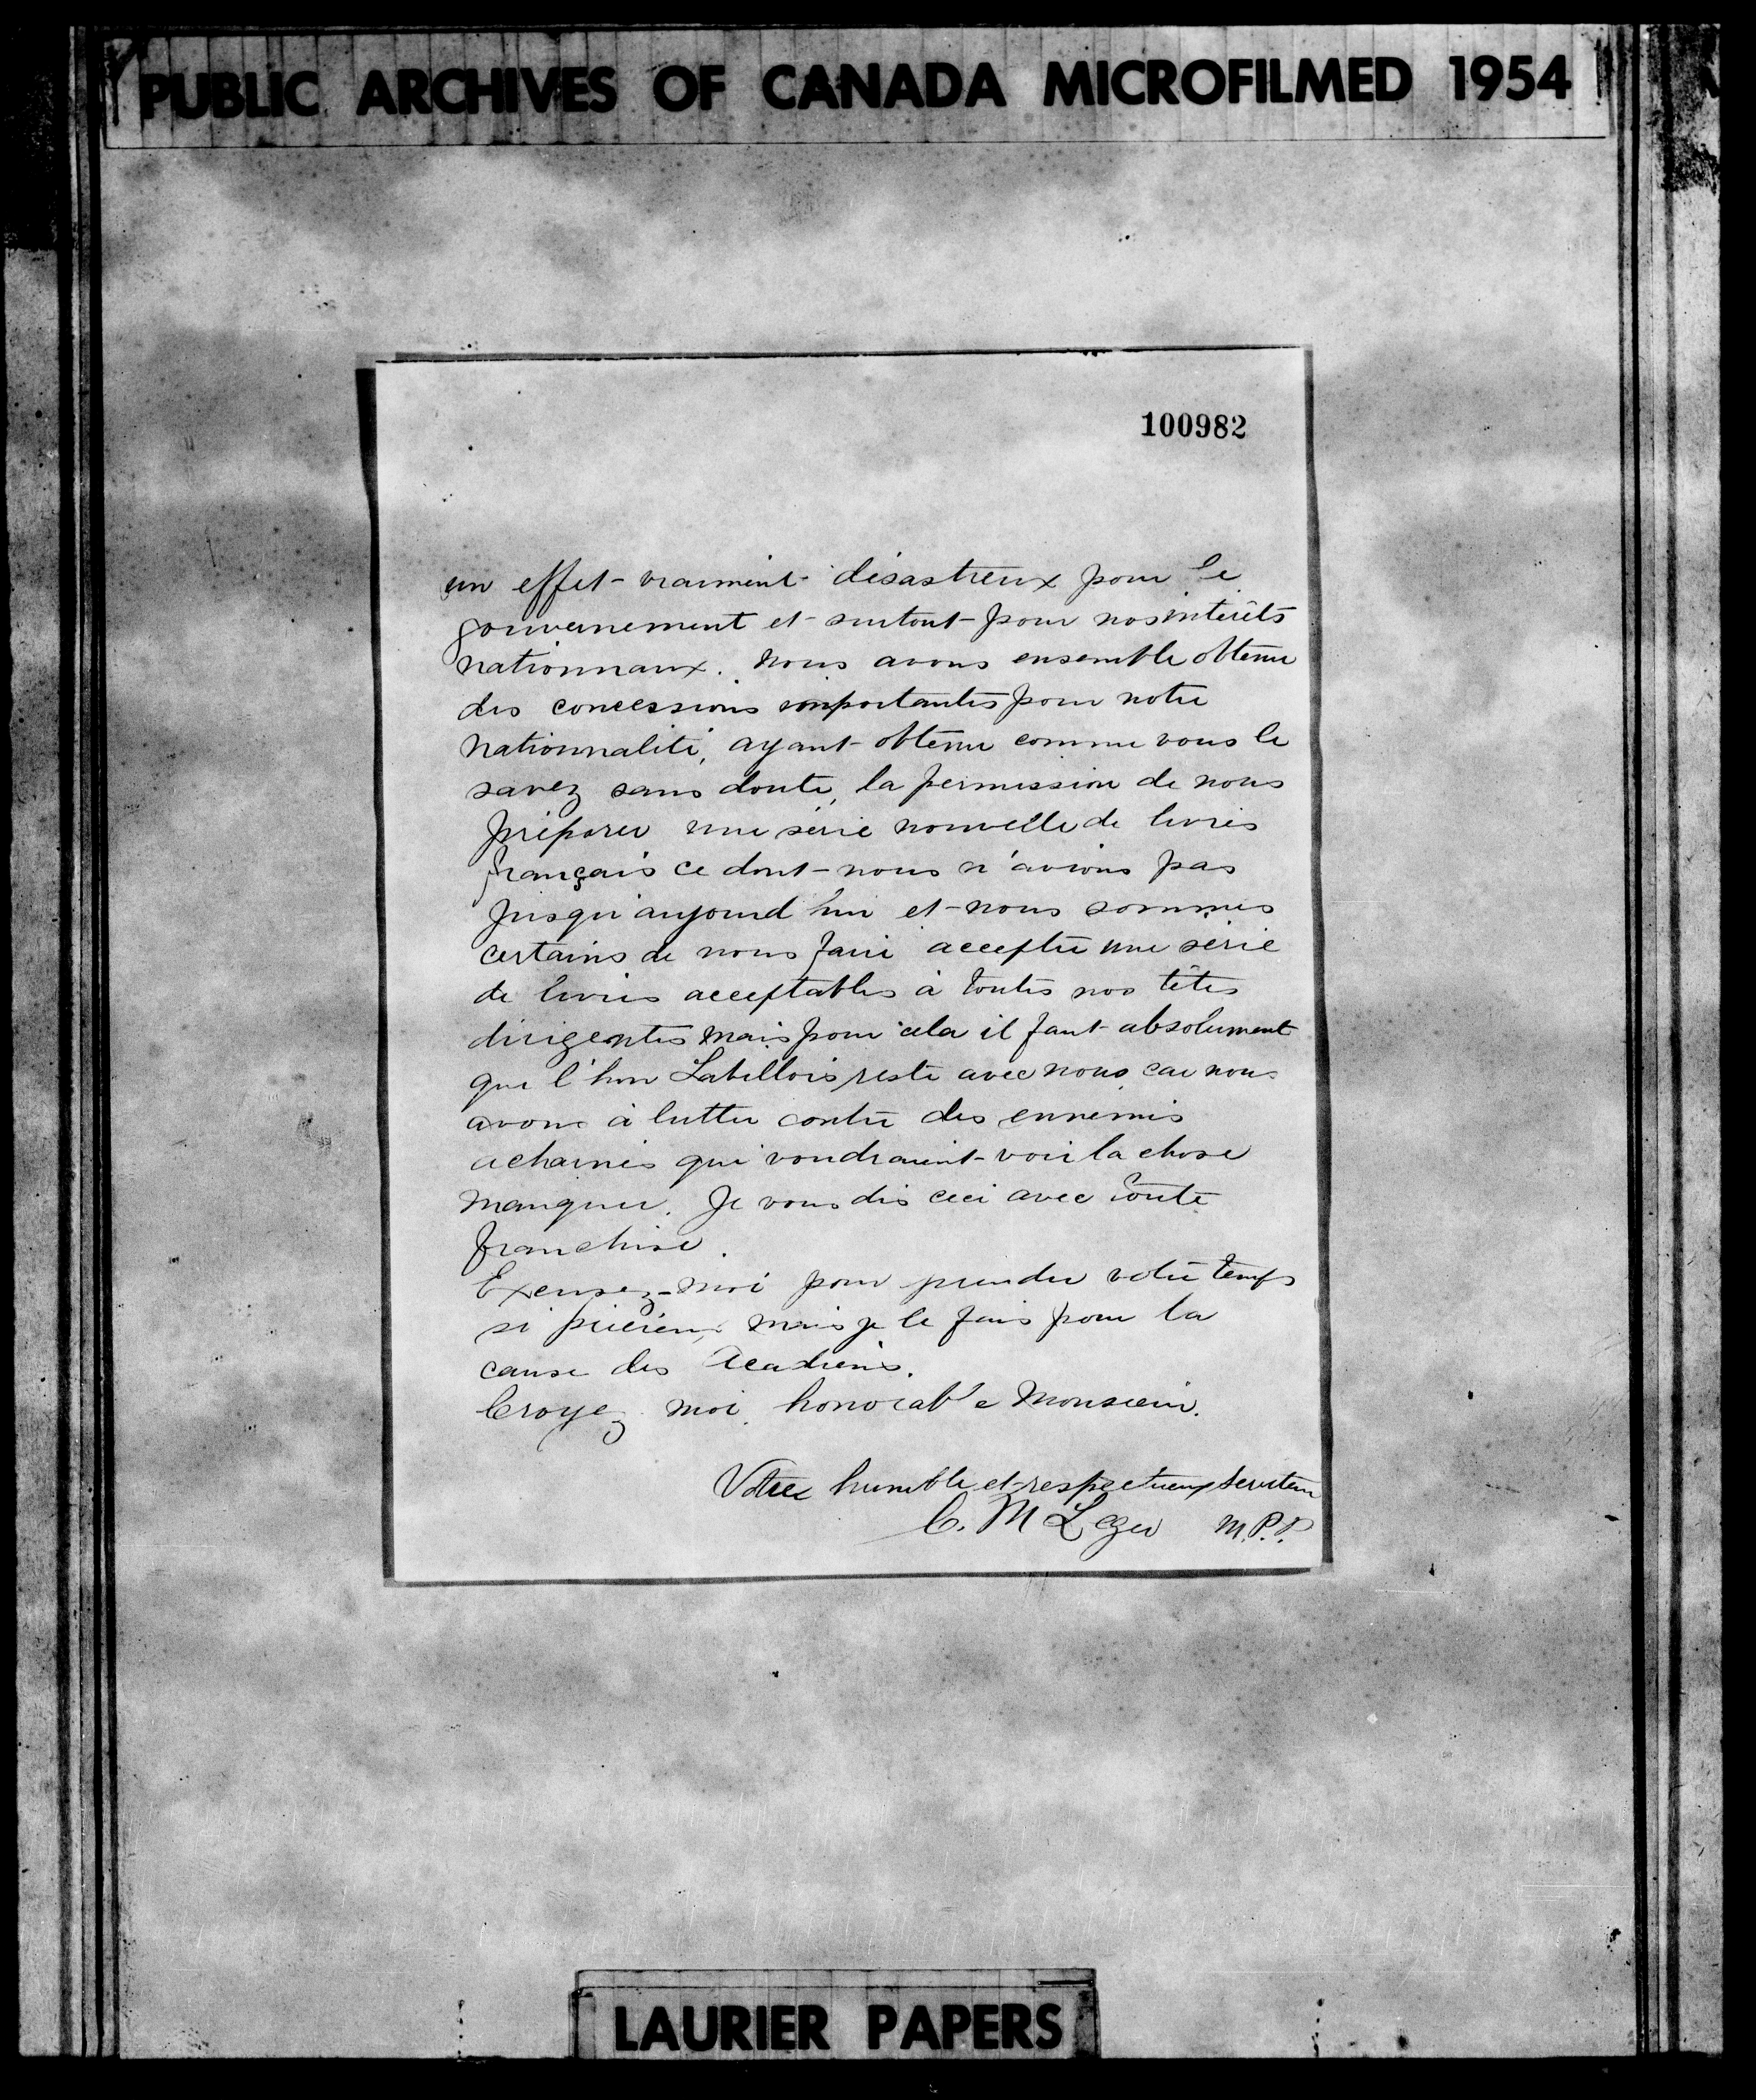 PUBLIC ARCHIVES OF CANADA MICROFILMED 1954
100982
un effet vraiment désastreux pour le
gouvernement et surtout pour nos intérêts
nationnaux. Nous avons ensemble obtenu
des concessions importantes pour notre
nationnalité, ayant obtenu comme vous le
savez sans doute, la permission de nous
préparer une série nouvelle de livres
français ce dont nous n'avions pas
jusqu'aujourd'hui et nous sommes
certains de nous faire accepter une série
de livres acceptables à toutes nos têtes
dirigentes mais pour cela il faut absolument
que l'hon Labillois reste avec nous car nous
avons à lutter contre des ennemis
acharnés qui voudraient voir la chose
manquer. Je vous dis ceci avec toute
franchise.
Excusez-moi pour prendre votre temps
si précieux, mais je le fais pour la
cause des Acadiens.
Croyez moi honorable Monsieur.
Votre humble et respectueux serviteur
C. M Leger M.P.P.
LAURIER PAPERS